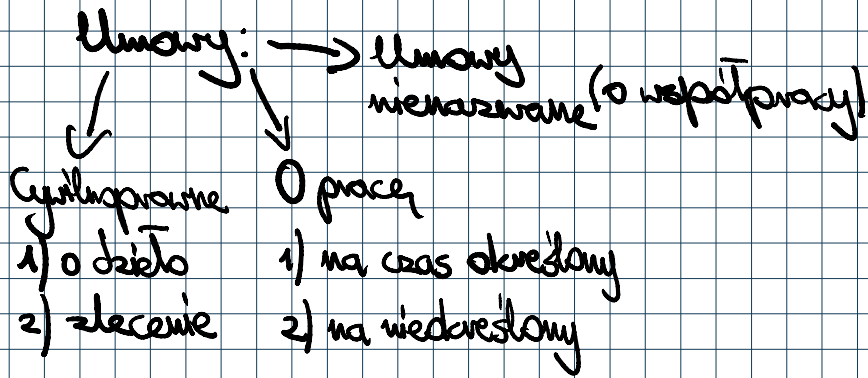 Umowy: → Umowy
nienazwane (o współpracy)
Cywilnoprawne
1) o dzieło
2) zlecenie
O pracę
1) na czas określony
2) na nieokreślony